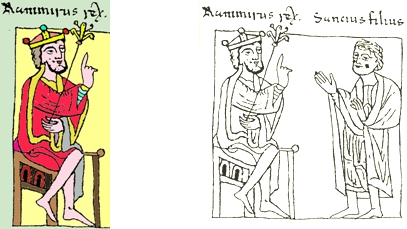 Ranimirus rex.
Ranimirus rex. Sancius filius